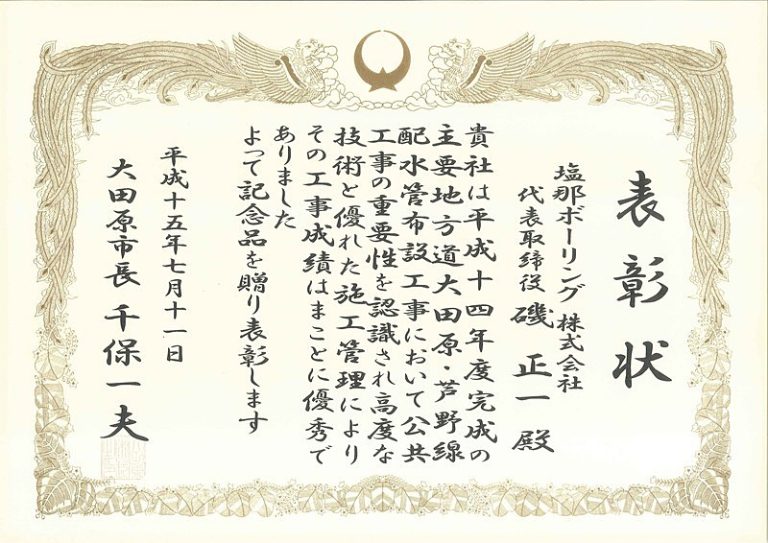 表彰状
塩那ボーリング 株式会社
代表取締役 磯 正一 殿
貴社は平成十四年度完成の
主要地方道大田原・芦野線
配水管布設工事において公共
工事の重要性を認識され高度な
技術と優れた施工管理により
その工事成績はまことに優秀で
ありました
よって記念品を贈り表彰します
平成十五年七月十一日
大田原市長 千保一夫